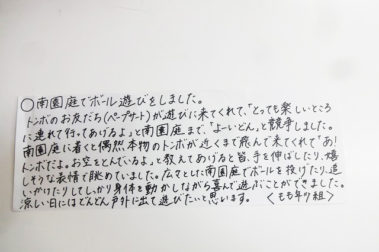 ○南園庭でボール遊びをしました。
トンボのお友だち(ペープサート)が遊びに来てくれて、「とっても楽しいところ
に連れて行ってあげるよ」と南園庭まで、「よーいどん」と競争しました。
南園庭に着くと偶然本物のトンボが近くまで飛んで来てくれて“あ!
トンボだよ。お空をとんでいるよ”と教えてあげると皆、手を伸ばしたり、嬉
しそうな表情で眺めていました。広々とした南園庭でボールを投げたり、追
いかけたりしてしっかり身体を動かしながら喜んで遊ぶことができました。
涼しい日にはどんどん戸外に出て遊びたいと思います。 <もも年少組>